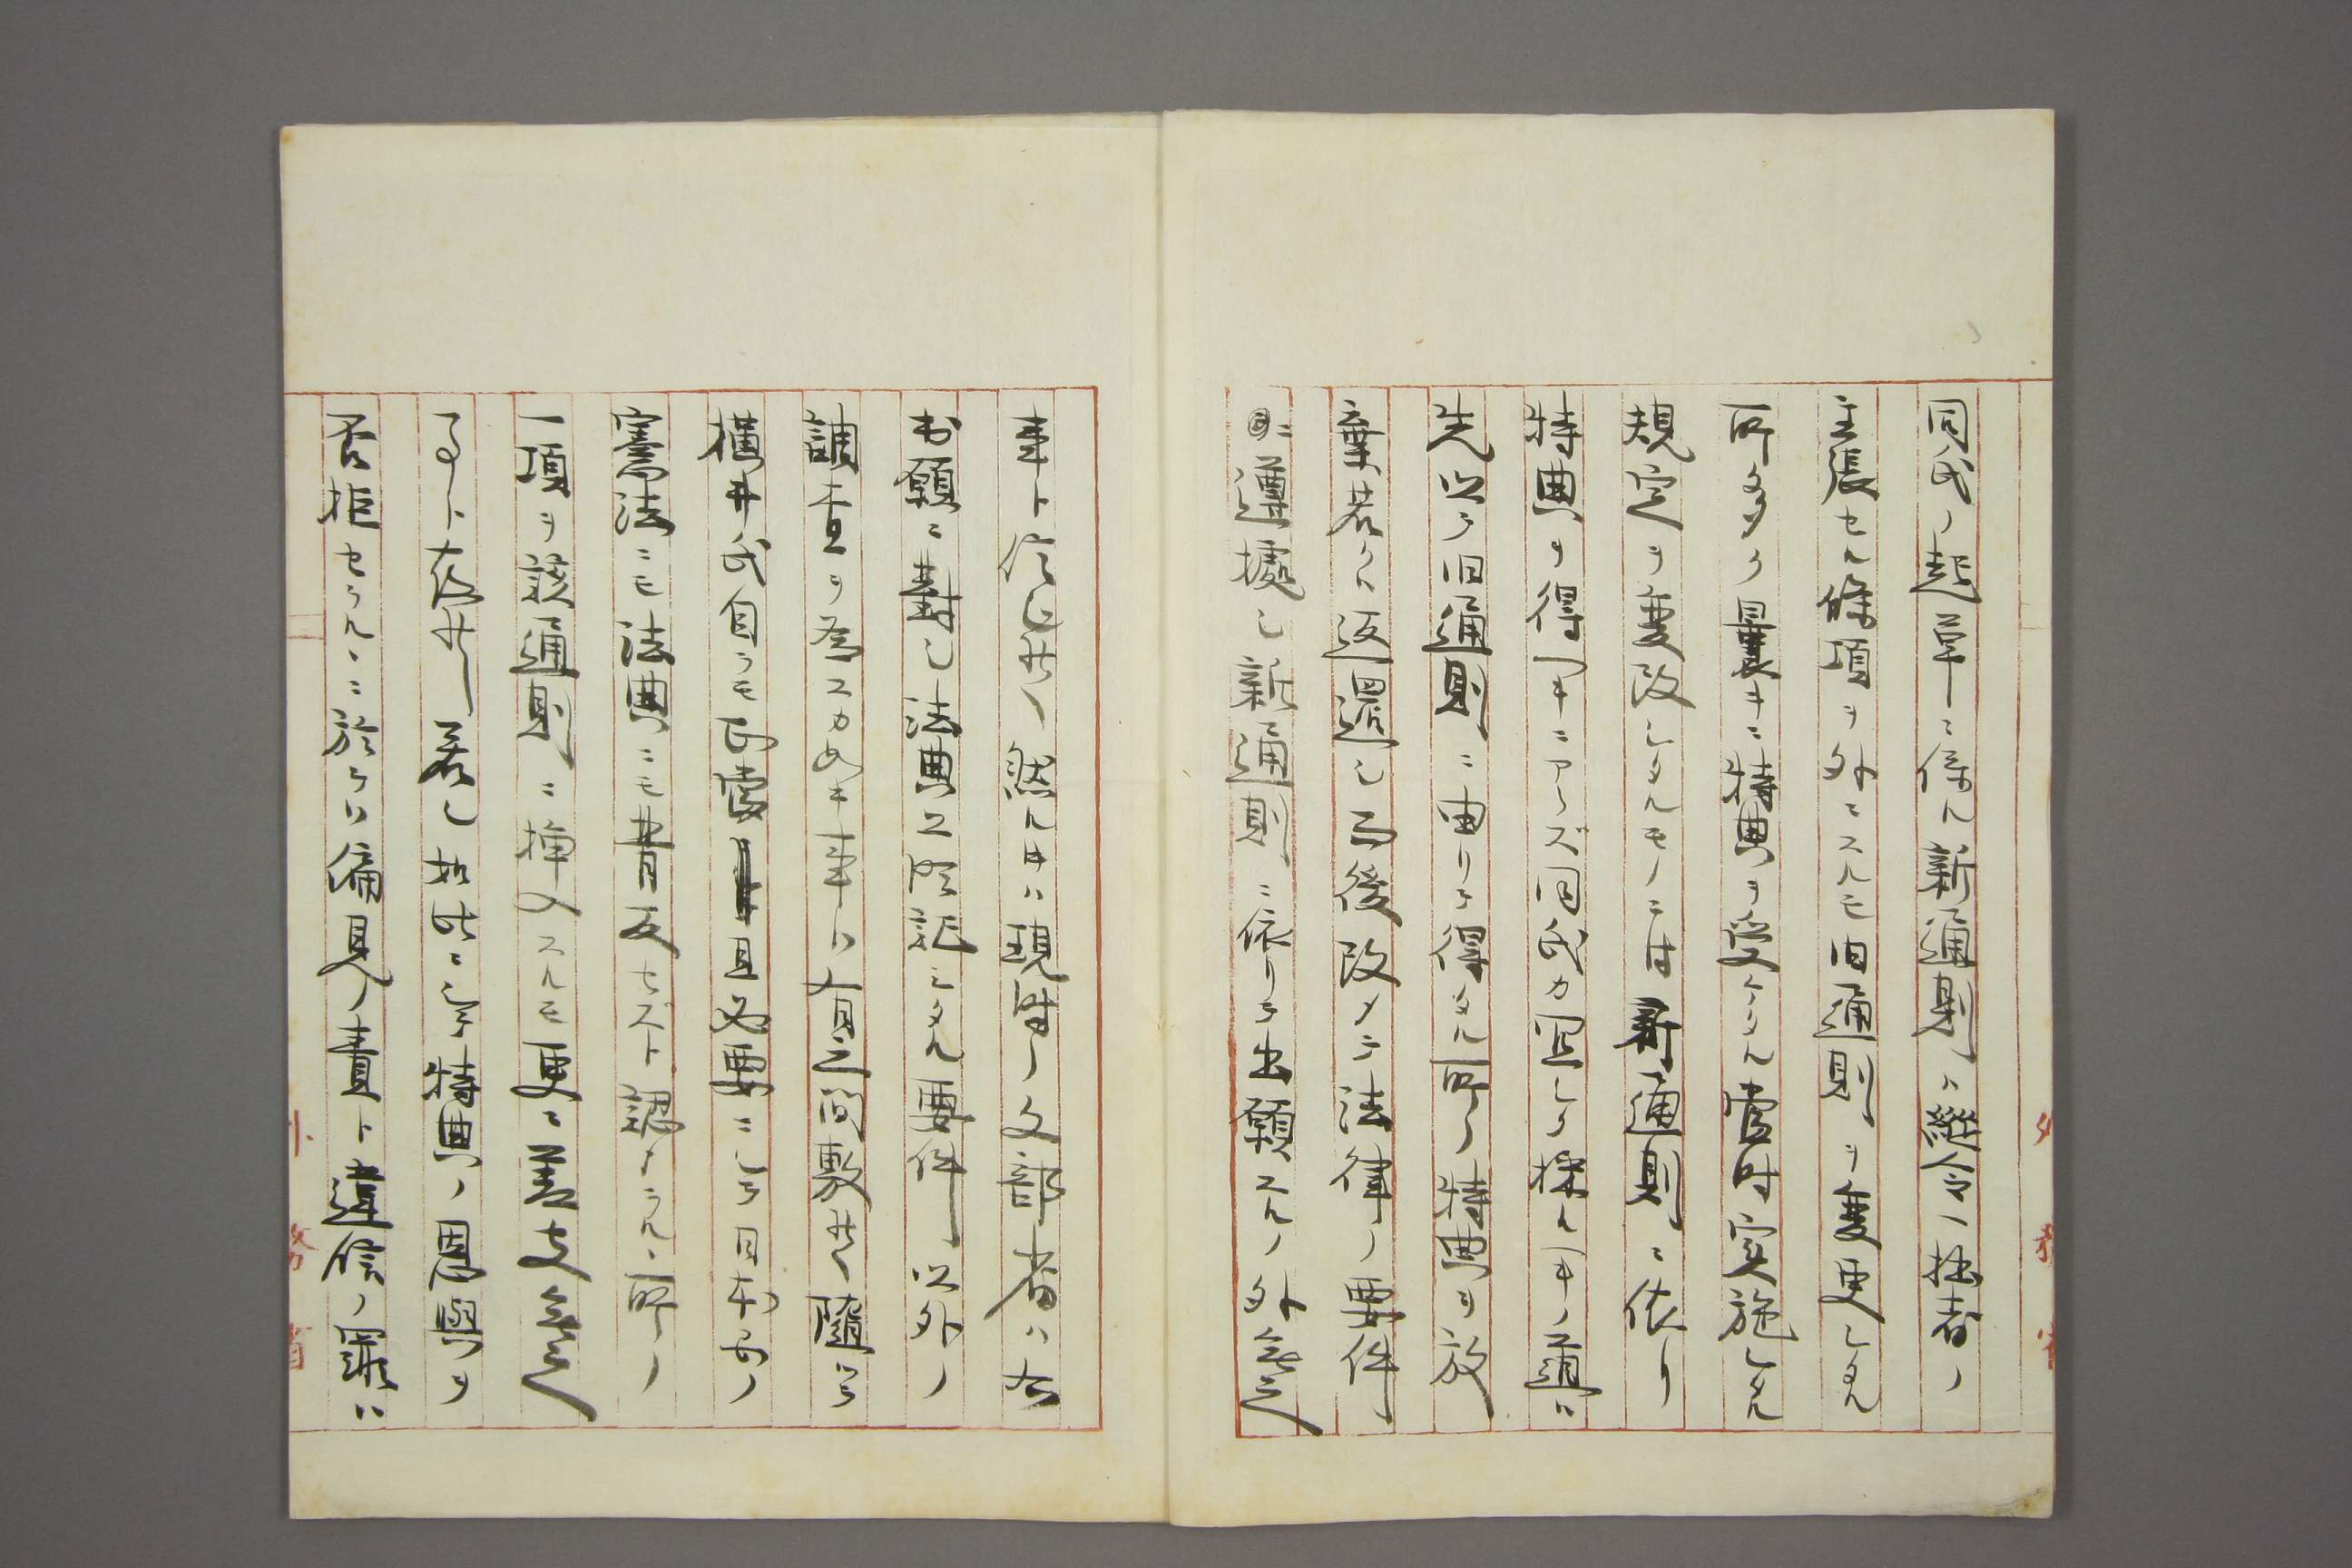 同氏ノ起草ニ係ル新通則ハ縱令ヘ拙者ノ
主張セル條項ヲ外ニスルモ旧通則ヲ變更シタル
所多ク曩キニ特典ヲ受ケタル當時實施シタル
規定ヲ變改シタルモノニ付新通則ニ依リ
特典ヲ得可キニアラズ同氏カ宜シク採ル可キノ道ハ
先以テ旧通則ニ由リテ得タル所ノ特典ヲ放
棄若クハ返還シ而後改メテ法律ノ要件
ニ遵據シ新通則ニ依リテ出願スルノ外無之
事ト信シ候然ル付ハ現時ノ文部省ハ右
出願ニ對シ法典上明記シタル要件以外ノ
調査ヲ為スカ如キ事ハ有之間敷候隨テ
橫井氏自ラモ正當且必要ニシテ日本帝國ノ
憲法ニモ法典ニモ背反セズト認メラルヽ所ノ
一項ヲ該通則ニ挿入スルモ更ニ差支無之
事ト存候若シ如此ニシテ特典ノ恩與ヲ
否拒セラルヽニ於テハ偏見ノ責ト違條ノ罪ハ
外務省
外務省